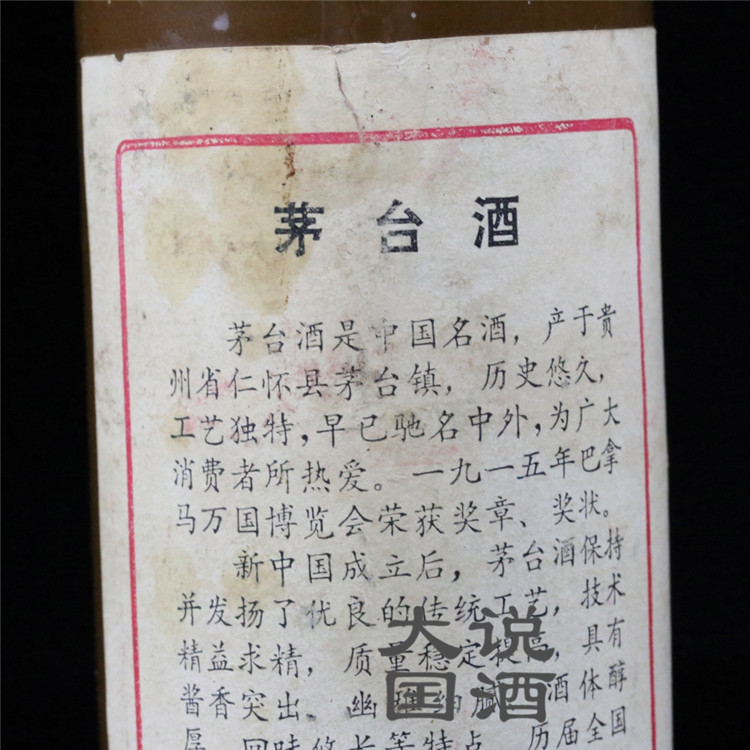 茅台酒
茅台酒是中国名酒，产于贵
州省仁怀县茅台镇，历史悠久，
工艺独特，早已驰名中外，为广大
消费者所热爱。一九一五年巴拿
马万国博览会荣获奖章、奖状。
新中国成立后，茅台酒保持
并发扬了优良的传统工艺，技术
精益求精，质量稳定提高，具有
酱香突出、幽雅细腻、酒体醇
厚、回味悠长等特点。历届全国
大说
国酒